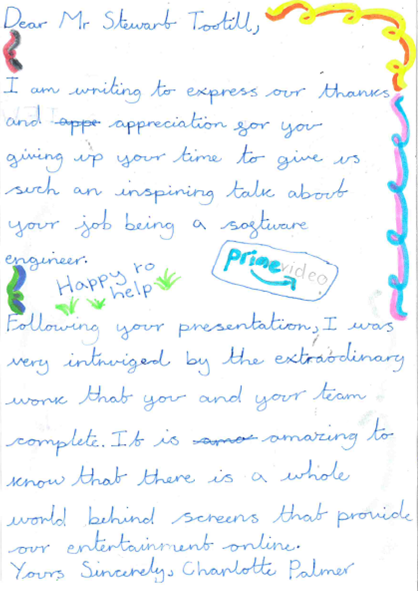 Dear Mr Stewart Tootill,
I am writing to express our thanks
and appe appreciation for you
giving up your time to give us
such an inspiring talk about
your job being a software
engineer.
Happy to
help
prime video
Following your presentation, I was
very intruiged by the extraodinary
work that you and your team
complete. It is ama amazing to
know that there is a whole
world behind screens that provide
our entertainment online.
Yours Sincerely, Charlotte Palmer